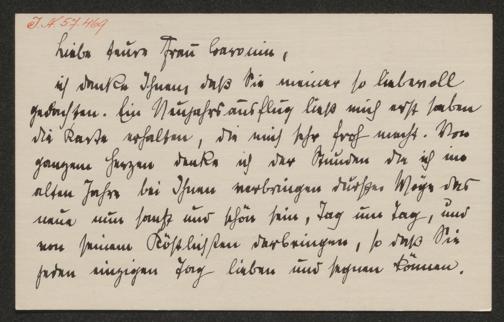 I.N. 57.469
Liebe teure Frau Baronin,
ich danke Ihnen, daß Sie meiner so liebevoll
gedachten. Ein Neujahrsausflug ließ mich erst soeben
die Karte erhalten, die mich sehr froh macht. Von
ganzem Herzen denke ich der Stunden die ich im
alten Jahre bei Ihnen verbringen durfte. Möge das
neue nun sanft und schön sein, Tag um Tag, und
von seinem Köstlichsten darbringen, so daß Sie
jeden einzigen Tag lieben und segnen können.